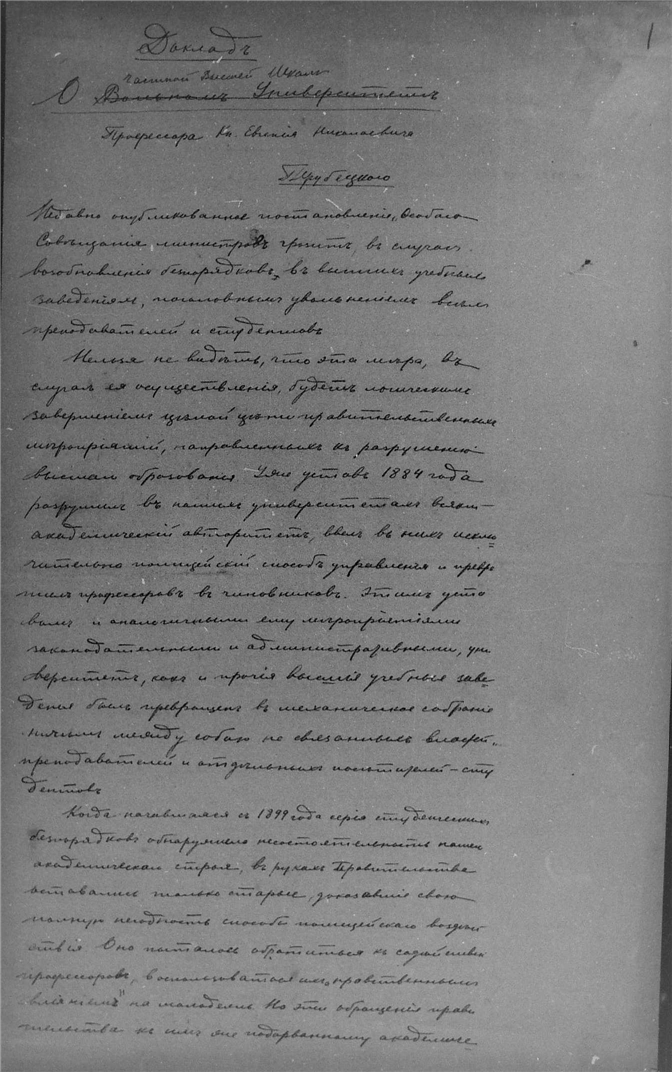 1
Докладъ
частной Высшей Школѣ
О Вольномъ Университетѣ
Профессора Кн. Евгенія Николаевича
Трубецкого
Недавно опубликованное постановленіе Особаго
Совѣщанія министровъ грозитъ, въ случаѣ
возобновленія безпорядковъ въ высшихъ учебныхъ
заведеніяхъ, поголовнымъ увольненіемъ всѣхъ
преподавателей и студентовъ
Нельзя не видѣть, что эта мѣра, въ
случаѣ ея осуществленія, будетъ логическимъ
завершеніемъ цѣлой цѣпи правительственныхъ
мѣропріятій, направленныхъ къ разрушенію
высшаго образованія. Уже уставъ 1884 года
разрушилъ въ нашихъ университетахъ всякій
академическій авторитетъ, ввелъ въ нихъ исклю-
чительно полицейскій способъ управленія и превра
тилъ профессоровъ въ чиновниковъ. Этимъ уста
вомъ и аналогичными ему мѣропріятіями
законодательными и административными, уни
верситетъ, какъ и прочія высшія учебныя заве-
денія былъ превращенъ въ механическое собраніе
ничѣмъ между собою не связанныхъ властей,
преподавателей и отдѣльныхъ посѣтителей – сту
дентовъ
Когда начавшаяся съ 1899 года серія студенческихъ
безпорядковъ обнаружила несостоятельность нашего
академическаго строя, въ рукахъ Правительства
оставались только старые, доказавшіе свою
полную негодность способы полицейскаго воздѣй
ствія. Оно пыталось обратиться къ содѣйствію
профессоровъ, воспользоваться ихъ „нравственнымъ
вліяніемъ" на молодежь. Но эти обращенія прави
тельства къ имъ же подорванному академиче-